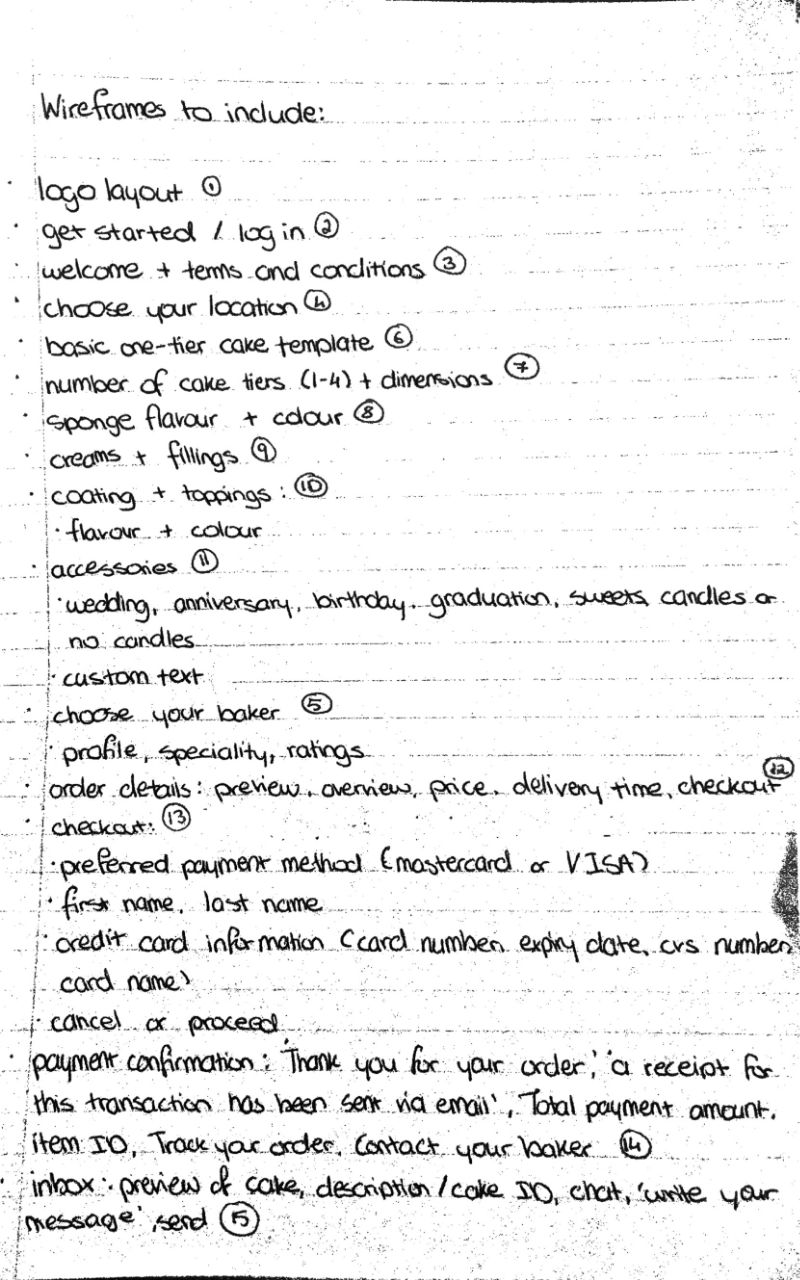 Wireframes to include:
· logo layout ①
· get started / log in ②
· welcome + terms and conditions ③
· choose your location ④
· basic one-tier cake template ⑥
· number of cake tiers (1-4) + dimensions ⑦
· sponge flavour + colour ⑧
· creams + fillings ⑨
· coating + toppings: ⑩
· flavour + colour
· accessories ⑪
· wedding, anniversary, birthday, graduation, sweets, candles or
no candles
· custom text
· choose your baker ⑤
· profile, speciality, ratings
· order details: preview, overview, price, delivery time, checkout ⑫
· checkout: ⑬
· preferred payment method (mastercard or VISA)
· first name, last name
· credit card information (card number, expiry date, cvs number,
card name)
· cancel or proceed
· payment confirmation: 'Thank you for your order', 'a receipt for
this transaction has been sent via email', Total payment amount,
item ID, Track your order, Contact your baker ⑭
· inbox: preview of cake, description/cake ID, chat, 'write your
message', send ⑮